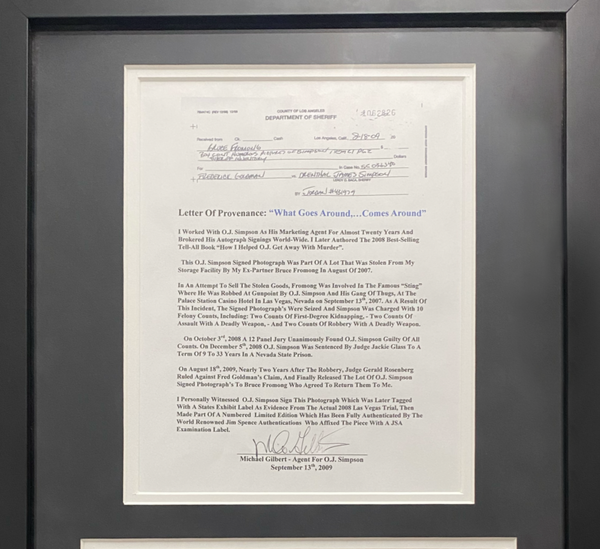 COUNTY OF LOS ANGELES
DEPARTMENT OF SHERIFF
Received from
Cash
Los Angeles, Calif. 8-18-09
BRUCE FROMONG
Dollars
For
in Case No.
FREDERICK GOLDMAN vs ORENTHAL JAMES SIMPSON
Letter Of Provenance: "What Goes Around,...Comes Around"
I Worked With O.J. Simpson As His Marketing Agent For Almost Twenty Years And
Brokered His Autograph Signings World-Wide. I Later Authored The 2008 Best-Selling
Tell-All Book "How I Helped O.J. Get Away With Murder".
This O.J. Simpson Signed Photograph Was Part Of A Lot That Was Stolen From My
Storage Facility By My Ex-Partner Bruce Fromong In August Of 2007.
In An Attempt To Sell The Stolen Goods, Fromong Was Involved In The Famous "Sting"
Where He Was Robbed At Gunpoint By O.J. Simpson And His Gang Of Thugs, At The
Palace Station Casino Hotel In Las Vegas, Nevada on September 13th, 2007. As A Result Of
This Incident, The Signed Photograph's Were Seized And Simpson Was Charged With 10
Felony Counts, Including: Two Counts Of First-Degree Kidnapping, - Two Counts Of
Assault With A Deadly Weapon, - And Two Counts Of Robbery With A Deadly Weapon.
On October 3rd, 2008 A 12 Panel Jury Unanimously Found O.J. Simpson Guilty Of All
Counts. On December 5th, 2008 O.J. Simpson Was Sentenced By Judge Jackie Glass To A
Term Of 9 To 33 Years In A Nevada State Prison.
On August 18th, 2009, Nearly Two Years After The Robbery, Judge Gerald Rosenberg
Ruled Against Fred Goldman's Claim, And Finally Released The Lot Of O.J. Simpson
Signed Photograph's To Bruce Fromong Who Agreed To Return Them To Me.
I Personally Witnessed O.J. Simpson Sign This Photograph Which Was Later Tagged
With A States Exhibit Label As Evidence From The Actual 2008 Las Vegas Trial, Then
Made Part Of A Numbered Limited Edition Which Has Been Fully Authenticated By The
World Renowned Jim Spence Authentications Who Affixed The Piece With A JSA
Examination Label.
Michael Gilbert - Agent For O.J. Simpson
September 13th, 2009